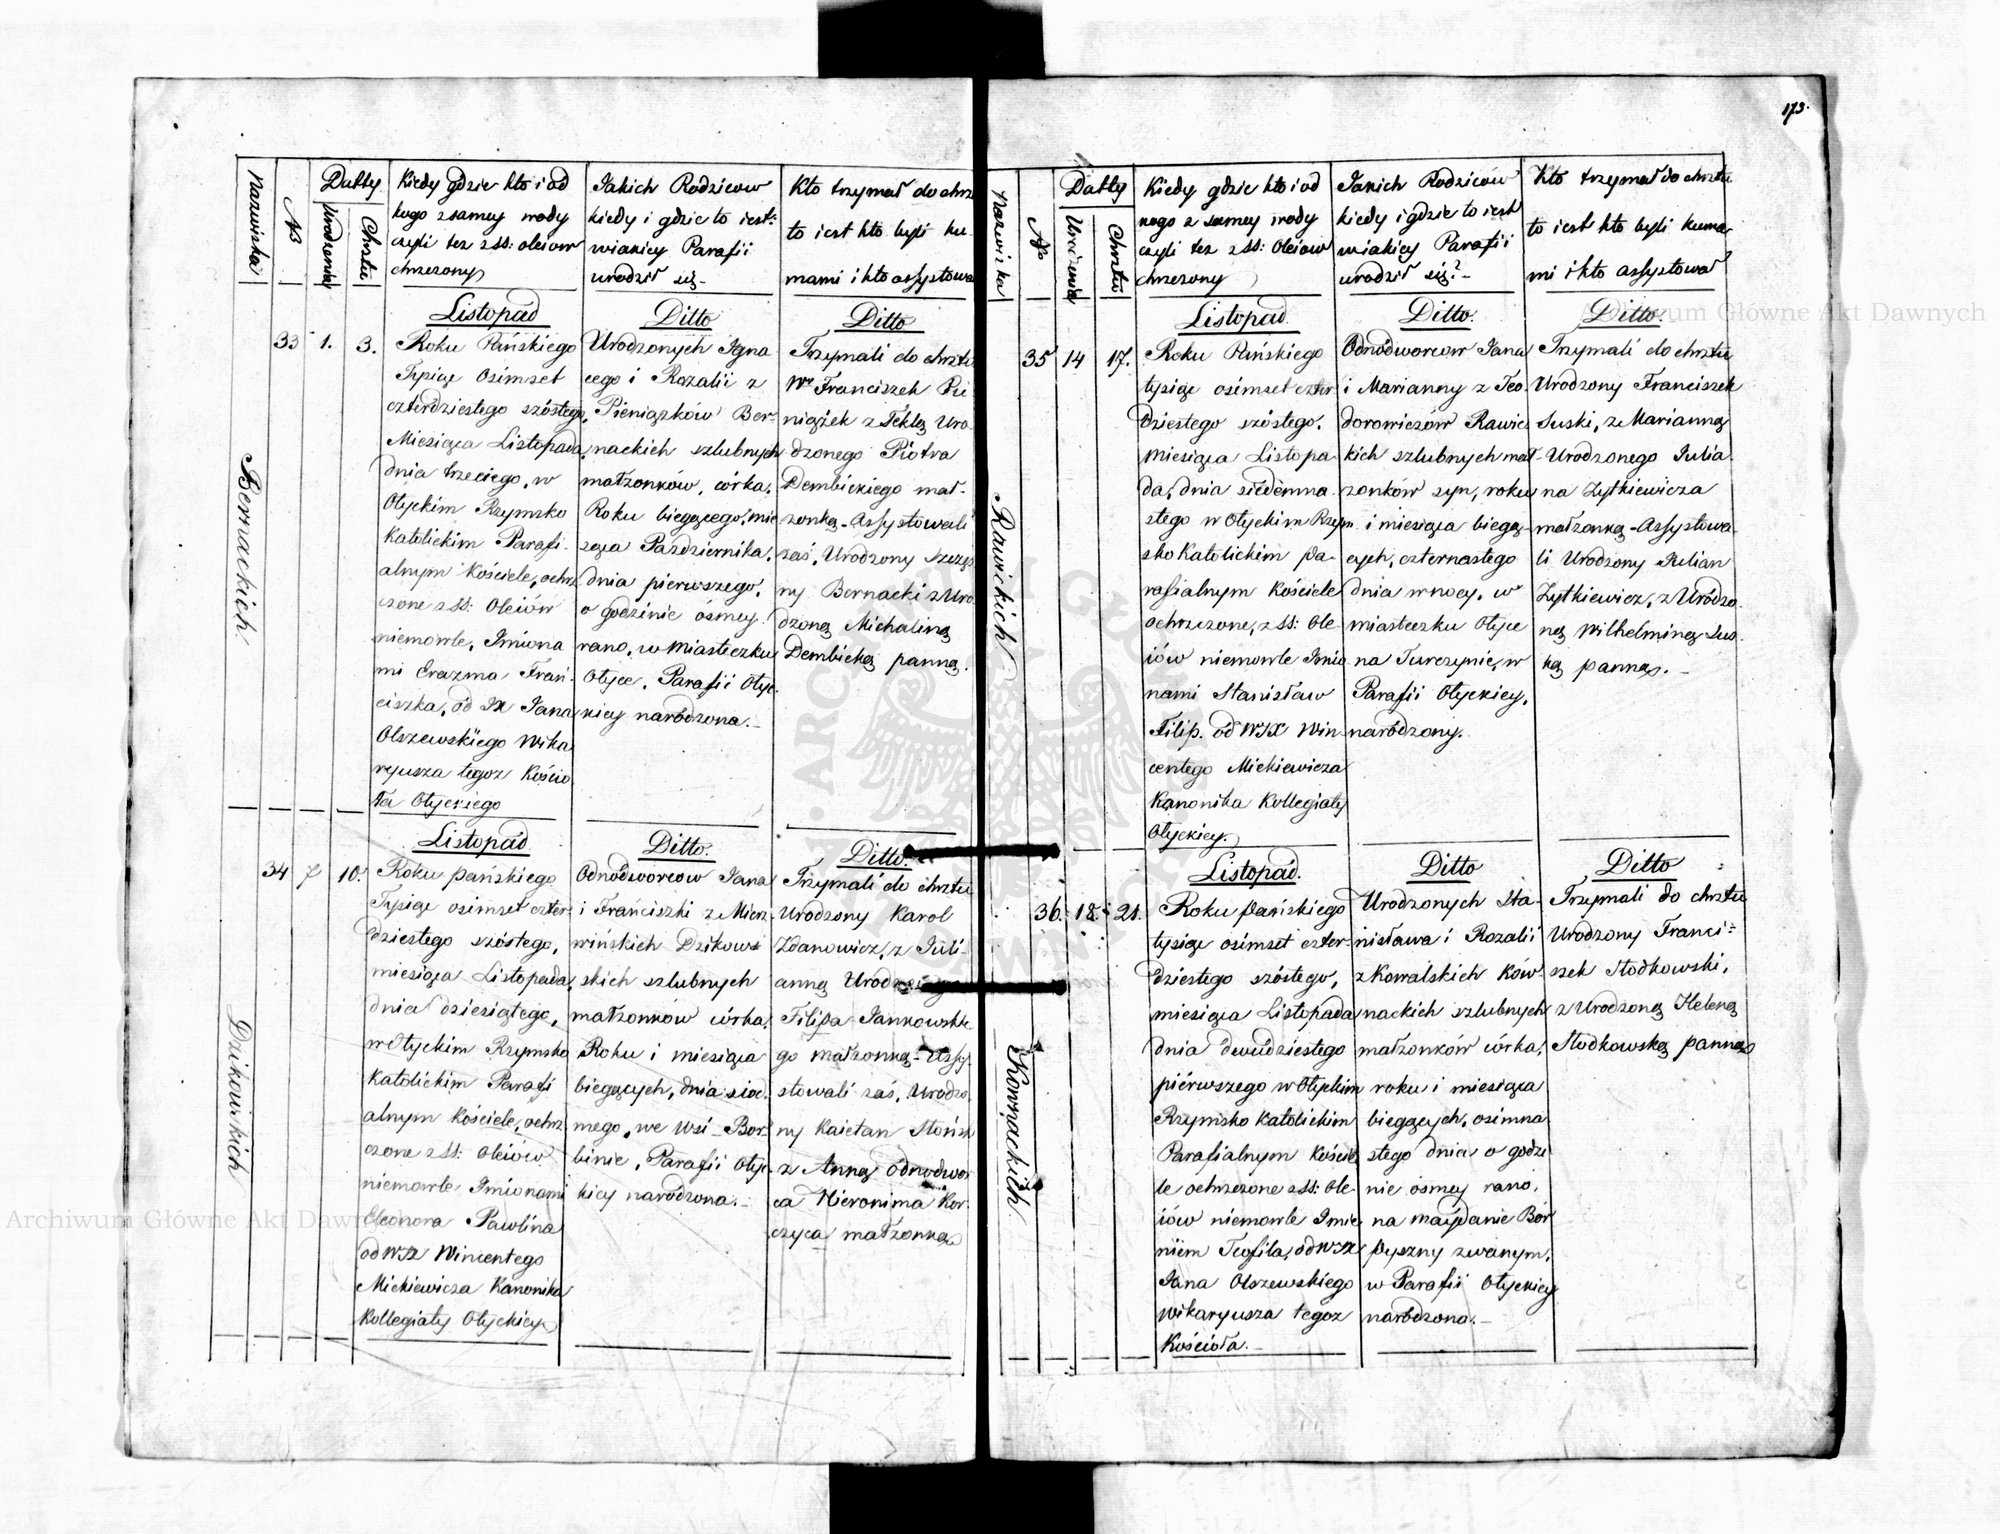 173.
Nazwiska
№
Datty
Urodzenia
Chrztu
Kiedy gdzie kto i od
kogo z samey wody
czyli też z SS: oleiow
chrzczony
Jakich Rodzicow
kiedy i gdzie to iest:
wiakiey Parafii
urodził się.
Kto trzymał do chrz
to iest kto byli ku-
mami i kto assystowa
Bernackich.
33
1.
3.
Listopad
Roku Pańskiego
Tysiąc osimset
czterdziestego szóstego,
Miesiąca Listopada,
dnia trzeciego, w
Ołyckim Rzymsko
Katolickim Parafi-
alnym Kościele, ochrz
czone z SS: Oleiów
niemowle, Imiona
mi Erazma Fran-
ciszka, od JX Jana
Olszewskiego Wika
ryusza tegoż Kościo
ła Ołyckiego
Ditto
Urodzonych Igna
cego i Rozalii z
Pieniązków Ber-
nackich szlubnych
małżonków, córka,
Roku biegącego, mie
siąca Pazdziernika,
dnia pierwszego,
o godzinie ósmey
rano, w Miasteczku
Ołyce, Parafii Ołyc-
kiey narodzona.-
Ditto
Trzymali do chrztu
Wny Franciszek Pie
niążek z Teklą Uro
dzonego Piotra
Dembickiego mał-
żonką - Assystowali
zaś, Urodzony Szczęs
ny Bernacki z Uro
dzoną Michaliną
Dembicką panną.
Dzikowskich
34
7
10.
Listopad
Roku pańskiego
Tysiąc osimset czter
dziestego szóstego,
miesiąca Listopada,
dnia dziesiątego,
w Ołyckim Rzymsko
Katolickim Parafi
alnym Kościele, ochrz
czone z SS: oleiów
niemowle Imionami
Eleonora Pawlina
od WJX Wincentego
Mickiewicza Kanonika
Kollegiaty Ołyckiey
Ditto.
Odnodworcow Jana
i Franciszki z Mierz
wińskich Dzikow
skich szlubnych
małżonków córka,
Roku i miesiąca
biegących, dnia siod
mego, we Wsi Bor-
binie, Parafii Ołyc-
kiey narodzona.-
Ditto.
Trzymali do chrztu
Urodzony Karol
Zdanowicz, z Juli-
anną Urodzonego
Filipa Jankowskie
go małżonką - Assy-
stowali zaś, Urodzo
ny Kaietan Słońsk
z Anną odnodwor
ca Hieronima Kor-
czyca małżonką
Nazwiska
№
Datty
Urodzenia
Chrztu
Kiedy, gdzie kto i od
kogo z samey wody
czyli też z SS: Oleiow
chrzczony
Jakich Rodziców
kiedy i gdzie to iest
wiakiey Parafii
urodził się?-
Kto trzymał do chrztu
to iest kto byli kuma
mi i kto assystował
Rawickich
35
14
17.
Listopad.
Roku Pańskiego
tysiąc osimset czter
dziestego szóstego,
miesiąca Listopa-
da, dnia siedemna
stego w Ołyckim Rzym
sko Katolickim Pa-
rafialnym Kościele
ochrzczone, z SS: Ole
iów niemowle Imio
nami Stanisław
Filip. od WJX Win
centego Mickiewicza
Kanonika Kollegiaty
Ołyckiey.
Ditto.
Odnodworcow Jana
i Marianny z Teo
dorowiczów Rawic
kich szlubnych mał-
żonków syn, roku
i miesiąca biegą-
cych, czternastego
dnia w nocy, w
miasteczku Ołyce
na Turczynie, w
Parafii Ołyckiey,
narodzony.
Ditto.
Trzymali do chrztu
Urodzony Franciszek
Suski, z Marianną
Urodzonego Julia
na Żytkiewicza
małżonką - Assystowa-
li Urodzony Julian
Żytkiewicz, z Urodzo
ną Wilhelminą Sus-
ką panną.-
Kownackich.
36.
18.
21.
Listopad.
Roku Pańskiego
tysiąc osimset czter-
dziestego szóstego,
miesiąca Listopada
dnia dwudziestego
pierwszego w Ołyckim
Rzymsko Katolickim
Parafialnym Koście
le ochrzczone z SS: Ole-
iów niemowle Imie
niem Teofila, od WJX
Jana Olszewskiego
Wikaryusza tegoż
Kościoła.-
Ditto
Urodzonych Sta-
nisława i Rozalii
z Kowalskich Kow-
nackich szlubnych
małżonków córka,
roku i miesiąca
biegących, osimna
stego dnia o godzi
nie ósmey rano,
na maydanie Bor
pyszny zwanym,
w Parafii Ołyckiey
narodzona.-
Ditto
Trzymali do chrztu
Urodzony Franci-
szek Słodkowski,
z Urodzoną Heleną
Słodkowską panną
Archiwum Główne Akt Dawnych
Archiwum Główne Akt Dawnych